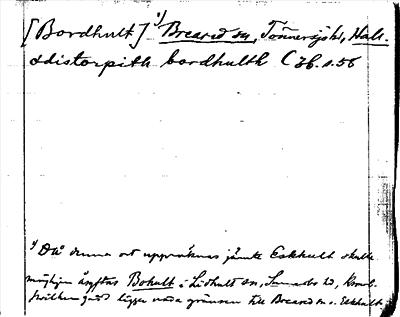 [Bordhult] 1) Breared sn, Tönnersjö hd, Hall.
ödistorpith bordhulth C 36. s. 56
1) Då denna ort uppräknas jämte Eskhult skulle
möjligen åsyftas Bohult i Lidhult sn, Sunnerbo hd, Kronob.
hvilken gård ligger nära gränsen till Breared sn o. Eskhult.